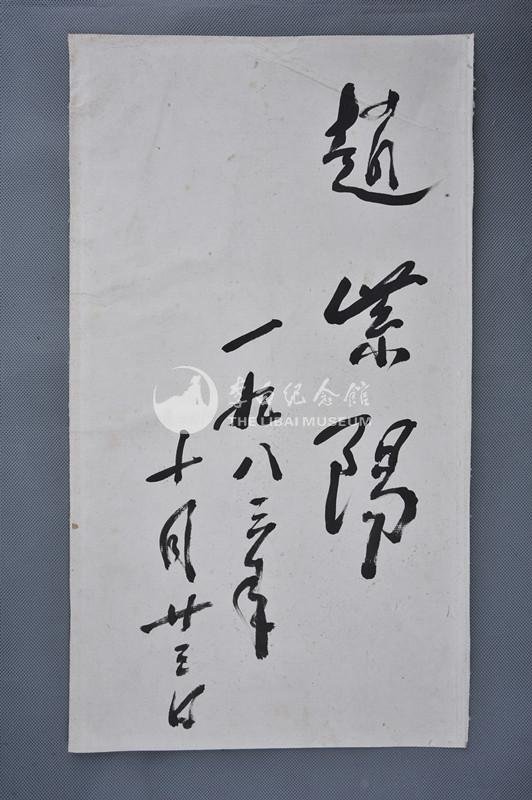 趙紫陽
一九八三年
十月廿三日
李白纪念馆
THE LIBAI MUSEUM